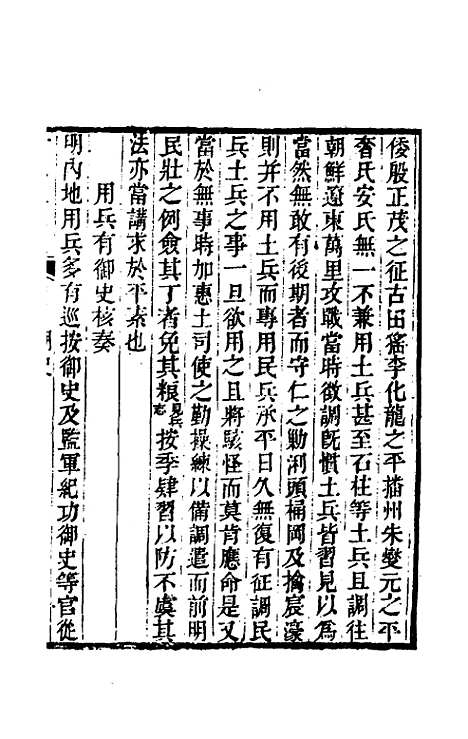 倭殷正茂之征古田猺李化龍之平播州朱燮元之平
奢氏安氏無一不兼用土兵甚至石柱等土兵且調往
朝鮮遼東萬里攻戰當時徵調旣慣土兵皆習見以爲
當然無敢有後期者而守仁之勦浰頭桶岡及擒宸濠
則并不用土兵而專用民兵承平日久無復有征調民
兵土兵之事一旦欲用之且將駭怪而莫肯應命是又
當於無事時加惠土司使之勤操練以備調遣而前明
民壯之例僉其丁者免其粮見兵志按季肆習以防不虞其
法亦當講求於平素也
用兵有御史核奏
明內地用兵多有巡按御史及監軍紀功御史等官從